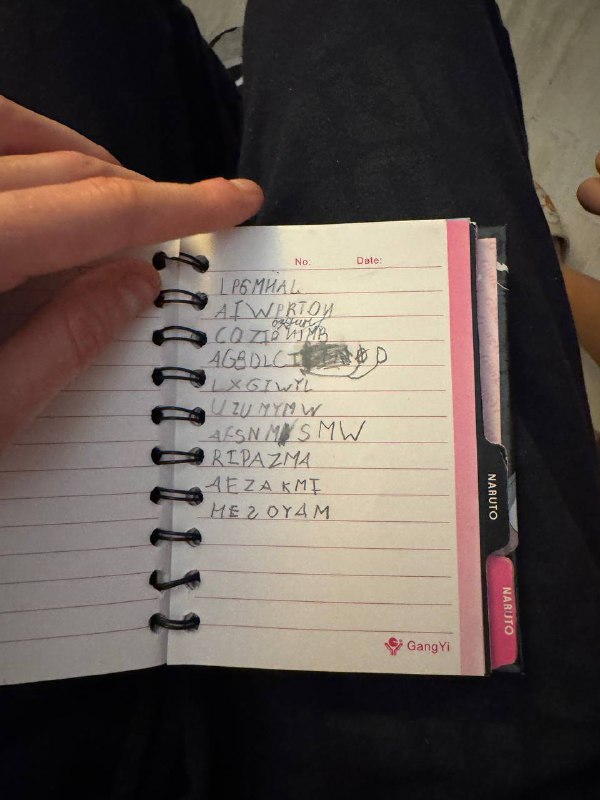 No: Date:
LP6MHAL
AIWPRTON
COZIPNIMB
AGBDLCI
LXGIWYL
UZUMYMW
AFSNM SMW
RIPAZMA
AEZAKMI
HESOYAM
NARUTO
NARUTO
GangYi